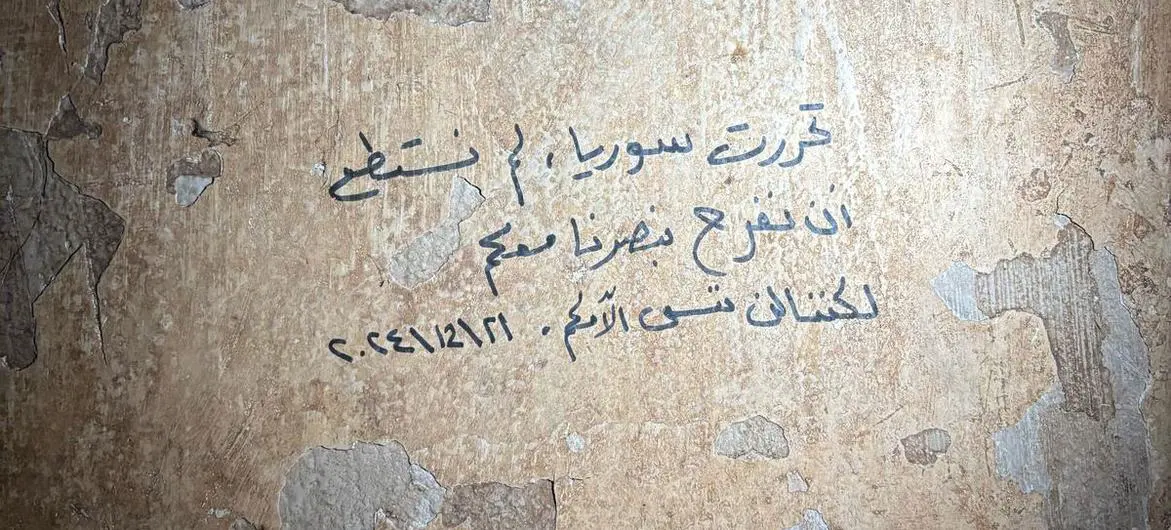 تحررت سوريا، لم نستطع
ان نفرح بنصرنا معكم
لكننا لن ننسى آلآمكم . ٢٠٢٤\١٢\٢١